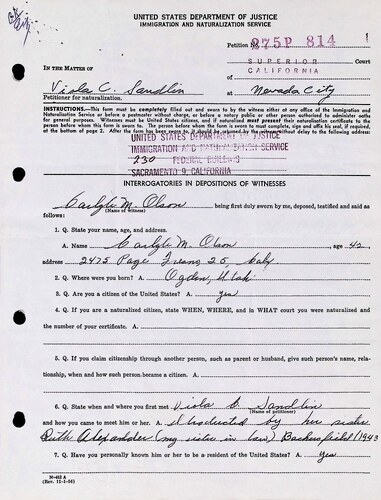 UNITED STATES DEPARTMENT OF JUSTICE
IMMIGRATION AND NATURALIZATION SERVICE
Petition No. 275P 814
IN THE MATTER OF
SUPERIOR Court
of CALIFORNIA
Viola C. Sandlin
at Nevada City
Petitioner for naturalization.
INSTRUCTIONS.—This form must be completely filled out and sworn to by the witness either at any office of the Immigration and
Naturalization Service or before a postmaster without charge, or before a notary public or other person authorized to administer oaths
for general purposes. Witnesses must be United States citizens. If naturalized must present their naturalization certificate to the
person before whom this form is sworn to. The person before whom the form is sworn to must complete, sign and affix his seal, if required,
at the bottom of page 2. After the form has been sworn to, it should be returned by the witness without delay to the following address:
UNITED STATES DEPARTMENT OF JUSTICE
IMMIGRATION AND NATURALIZATION SERVICE
230 FEDERAL BUILDING
SACRAMENTO 9, CALIFORNIA
INTERROGATORIES IN DEPOSITIONS OF WITNESSES
Carlyle M. Olson being first duly sworn by me, deposed, testified and said as
(Name of witness)
follows:
1. Q. State your name, age, and address.
A. Name Carlyle M. Olson, age 42,
address 2475 Page Fresno 25, Calif.
2. Q. Where were you born? A. Ogden, Utah
3. Q. Are you a citizen of the United States? A. Yes
4. Q. If you are a naturalized citizen, state WHEN, WHERE, and in WHAT court you were naturalized and
the number of your certificate. A.
5. Q. If you claim citizenship through another person, such as parent or husband, give such person's name, rela-
tionship, when and how such person became a citizen. A.
6. Q. State when and where you first met Viola C. Sandlin
(Name of petitioner)
and how you came to meet him or her. A. Introduced by her sister
Ruth Alexander (my sister in law) Bakersfield (1943
7. Q. Have you personally known him or her to be a resident of the United States? A. Yes
N-462 A